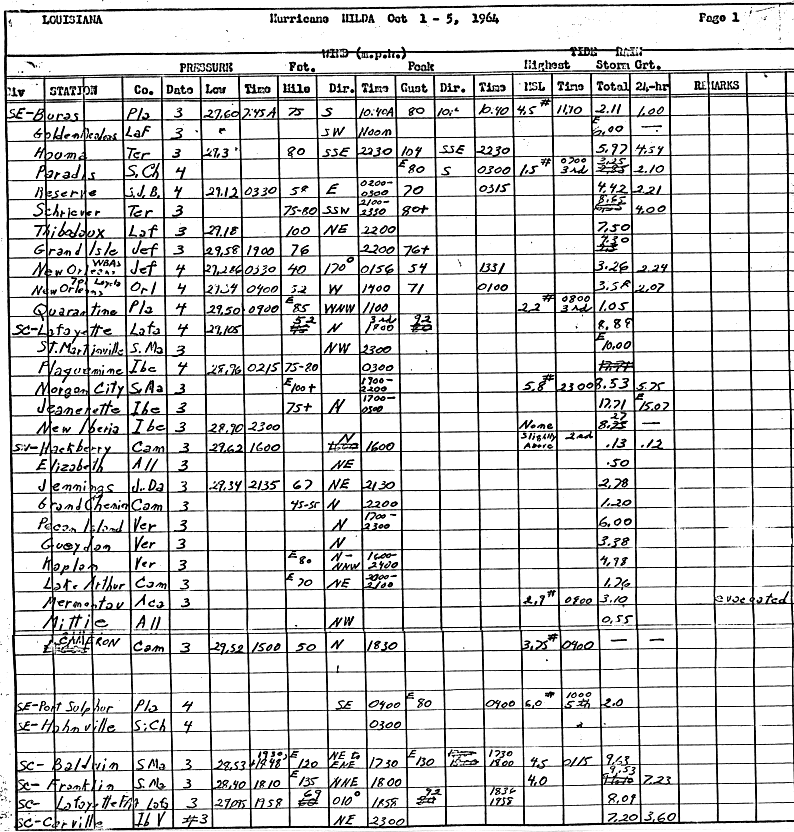 LOUISIANA Hurricane HILDA Oct 1 - 5, 1964 Page 1
WIND (m.p.h.) TIDE RAIN
PRESSURE Fst. Peak Highest Storm Grt.
Div STATION Co. Date Low Time Mile Dir. Time Gust Dir. Time MSL Time Total 24-hr REMARKS
SE-Buras Pla 3 29.60 7:45A 75 S 10:40A 80 10:40 4.5# 2.11 1.00
Laf 3 SW Noon E —
Houma Ter 3 80 SSE 2230 104 SSE 2230 5.97 4.54
Paradis S.Ch 4 E80 S 0300 1.5# 0700 3rd 2.10
Reserve S.J.B. 4 29.12 0330 58 E 0200-0300 70 0315 4.42 2.21
Schriever Ter 3 75-80 SSW 2100-2330 80+ 4.00
Thibodaux Laf 3 29.18 100 NE 2200 7.50
Grand Isle Jef 3 29.58 1900 76 2200 76+
New Orleans WBAS Jef 4 0330 40 170° 0156 54 1331 3.26 2.24
New Orleans Loyola Orl 4 0400 52 W 1400 71 0100 3.58 2.07
Quarantine Pla 4 29.50 0900 E85 WNW 1100 2.2# 0800 3rd 1.05
SC-Lafayette Lafa 4 29.105 52 N 3rd 1800 92 8.89
St. Martinville S.Ma 3 NW 2300 E10.00
Plaquemine Ibe 4 28.96 0215 75-80 0300
Morgan City S.Ma 3 E100+ 1700-2200 5.8# 2300 8.53 5.75
Jeanerette Ibe 3 75+ N 1700-0500 17.71 E15.07
New Iberia Ibe 3 28.90 2300 None —
SW-Hackberry Cam 3 29.62 1600 N 1600 Slightly Above 2nd .13 .12
Elizabeth All 3 NE .50
Jennings J.Da 3 29.34 2135 67 NE 2130 2.78
Grand Chenier Cam 3 45-55 N 2200 1.20
Pecan Island Ver 3 N 1700-2300 6.00
Gueydan Ver 3 N 3.38
Kaplan Ver 3 E80 N-NNW 1600-2400 4.98
Lake Arthur Cam 3 E70 NE 2000-2100 1.76
Mermentau Aca 3 2.9# 0800 3.10 evacuated
Mittie All NW 0.55
CAMERON Cam 3 29.52 1500 50 N 1830 3.75# 0400 — —
SE-Port Sulphur Pla 4 SE 0400 E80 0400 6.0# 1000 5th 2.0
SE-Hahnville S.Ch 4 0300
SC- Baldwin S.Ma 3 28.53 E120 NE to ENE 1730 E130 1730 1800 4.5 0115
SC- Franklin S.Ma 3 28.40 1810 E135 NNE 1800 4.0 9.53 7.23
SC- Lafayette Lafa 3 29.095 1958 69 010° 1858 92 1836 1958 8.09
SC-Carville Ib V #3 NE 2300 7.20 3.60